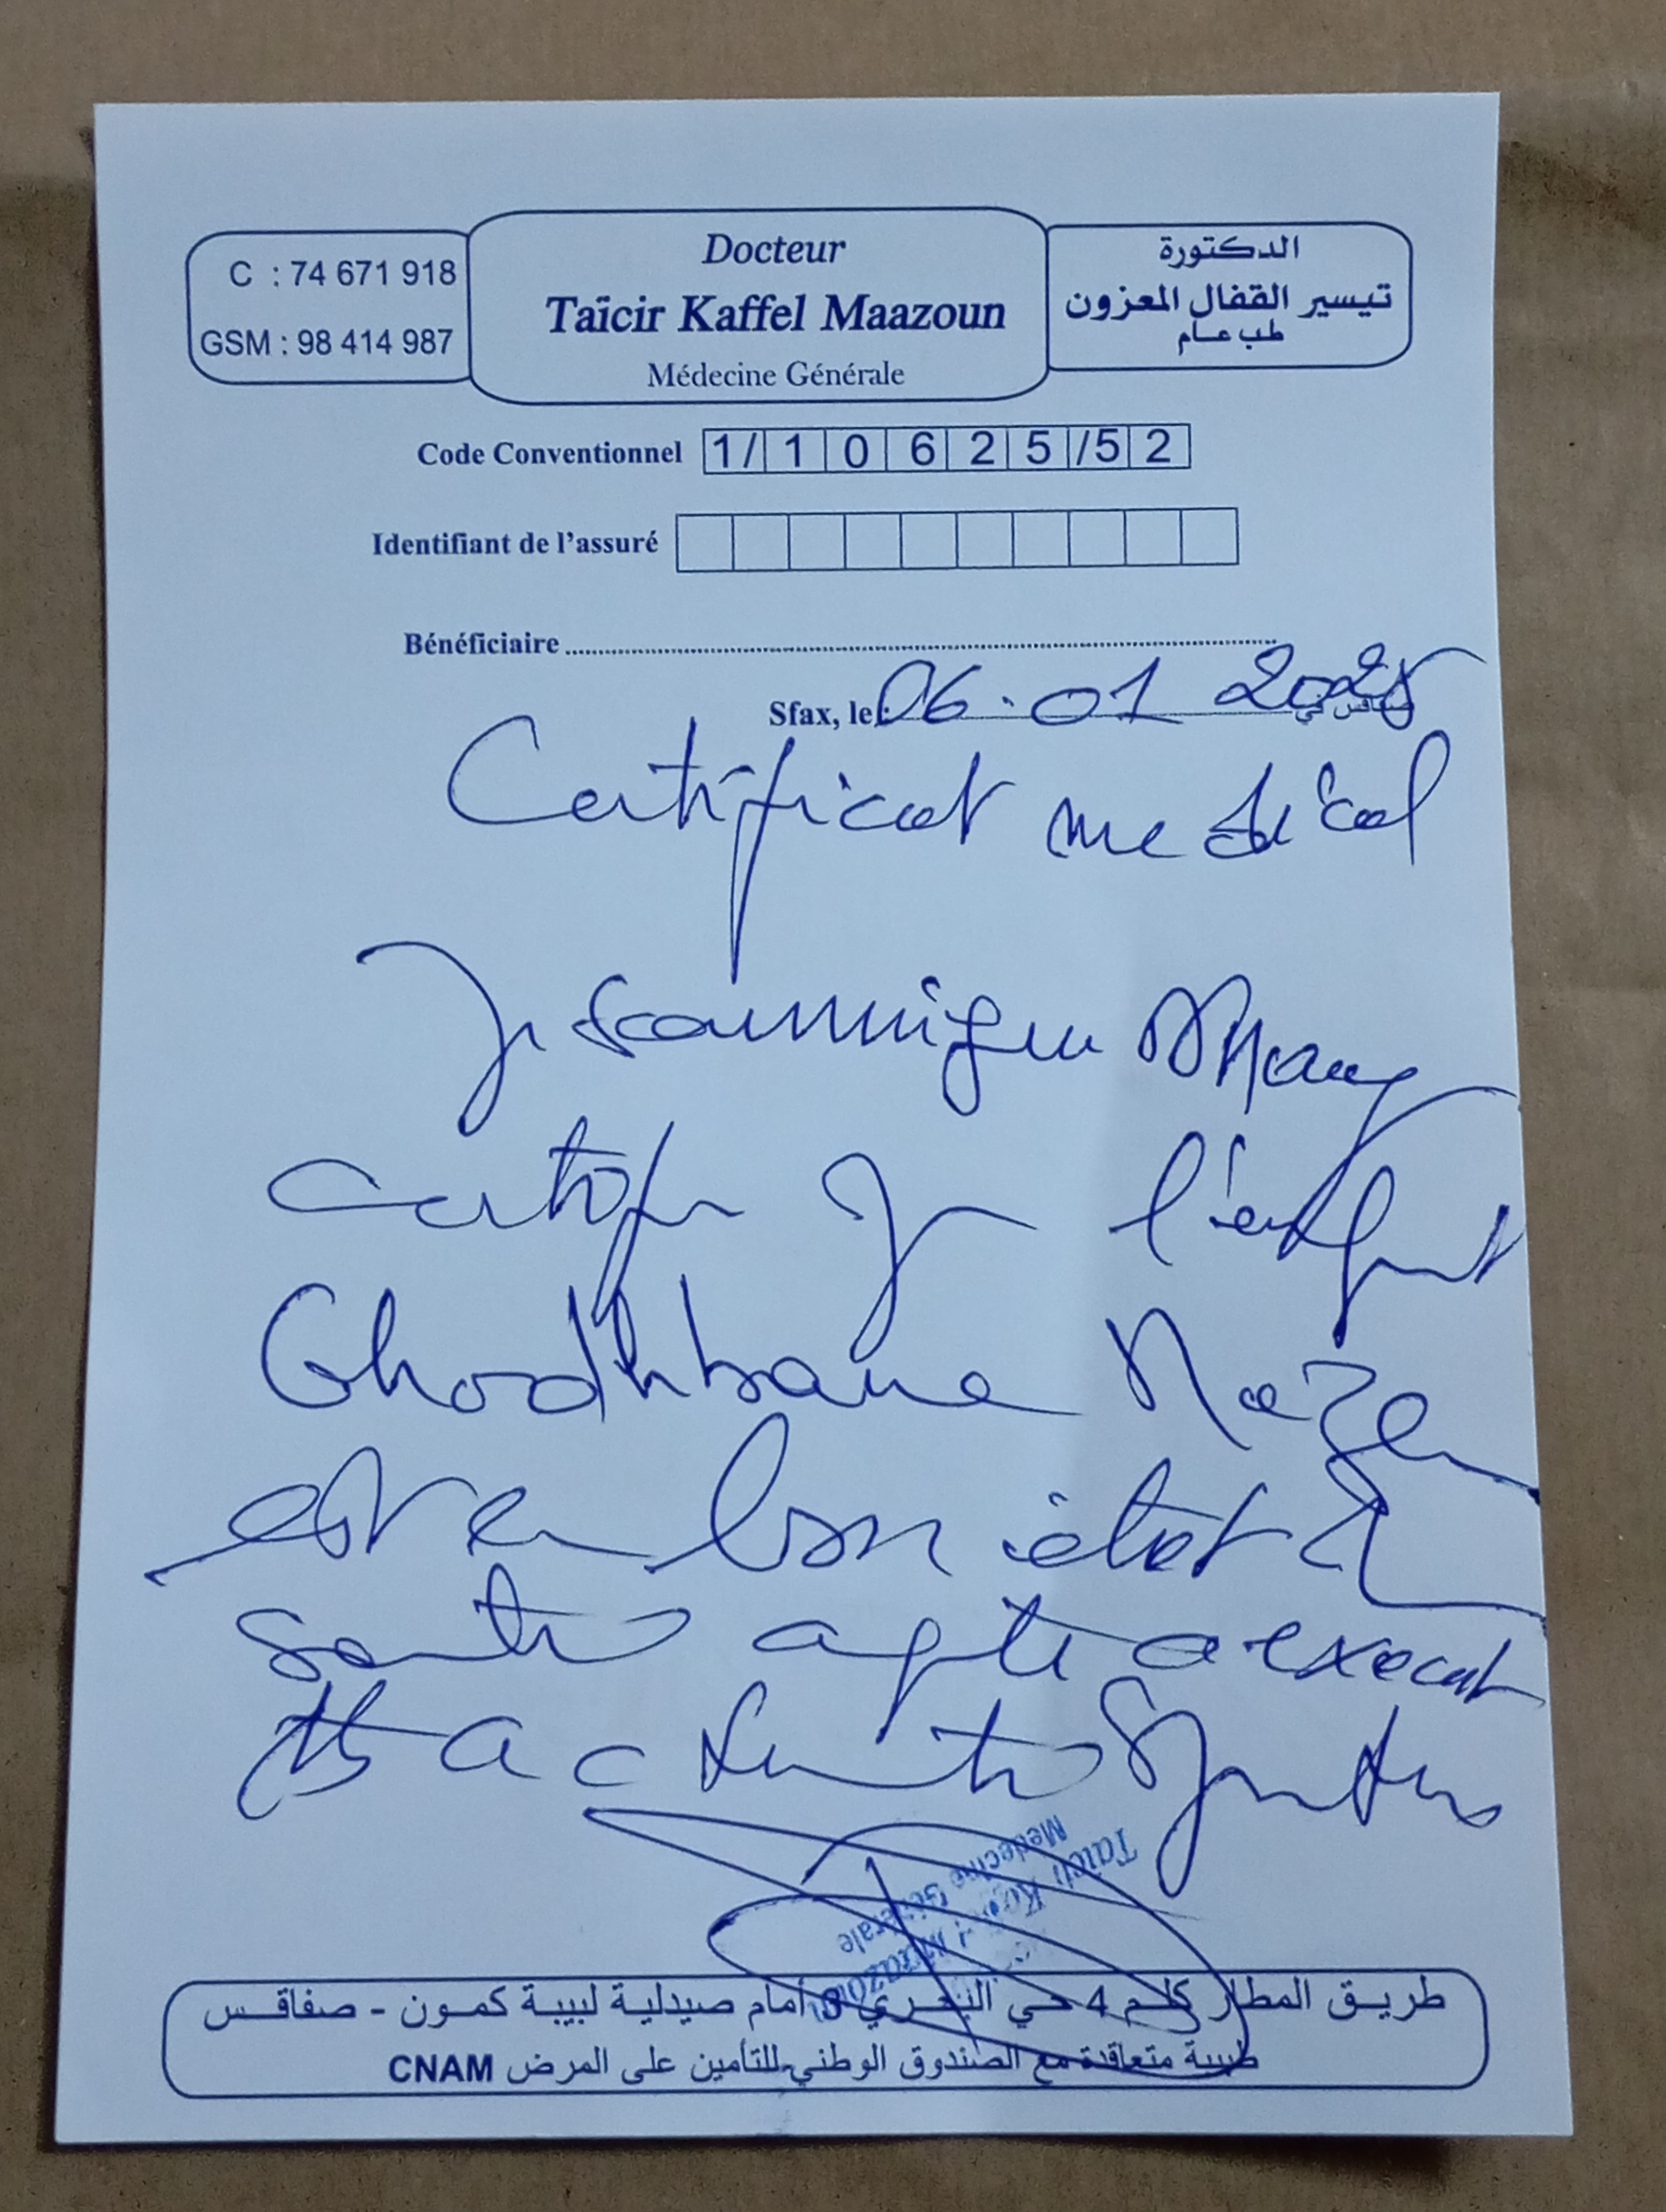 C : 74 671 918
GSM : 98 414 987
Docteur
Taïcir Kaffel Maazoun
Médecine Générale
الدكتورة
تيسير القفال المعزون
طب عام
Code Conventionnel 1/ 1 0 6 2 5 /5 2
Identifiant de l'assuré
Bénéficiaire
Sfax, le 06.01 2025
Certificat medical
Je soussignée
certifie que l'enfant
Ghodhbane Mazen
est en bon état de
santé apte a execut
activité
Taïcir Kaffel Maazoun
Médecine Générale
طريق المطار كلم 4 حي البحري 3 أمام صيدلية لبيبة كمون - صفاقس
طبيبة متعاقدة مع الصندوق الوطني للتأمين على المرض CNAM